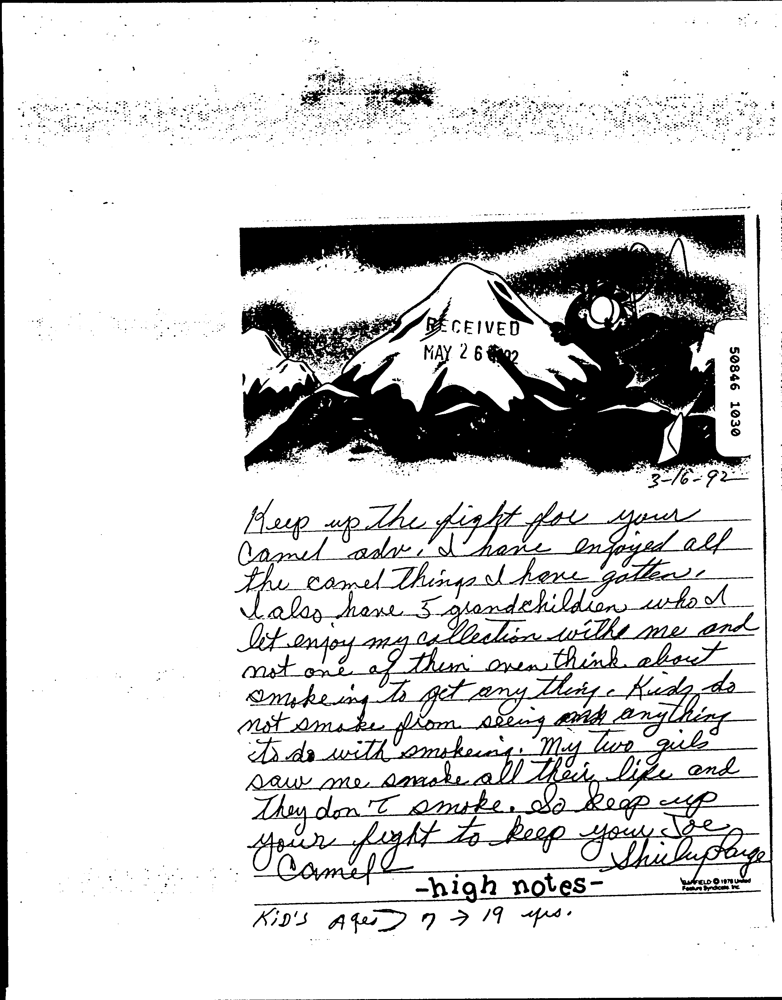 RECEIVED
MAY 26 1992
50846 1030
3-16-92
Keep up the fight for your
Camel adv. I have enjoyed all
the camel things I have gotten.
I also have 5 grandchildren who I
let enjoy my collection withe me and
not one of them even think about
smokeing to get any thing. Kids do
not smoke from seeing anything
to do with smokeing. My two girls
saw me smoke all their life and
They don't smoke. So keep up
your fight to keep your Joe
Camel
Shirley
-high notes-
GARFIELD © 1978 United
Feature Syndicate Inc.
KiD'S Ages 7 → 19 yrs.